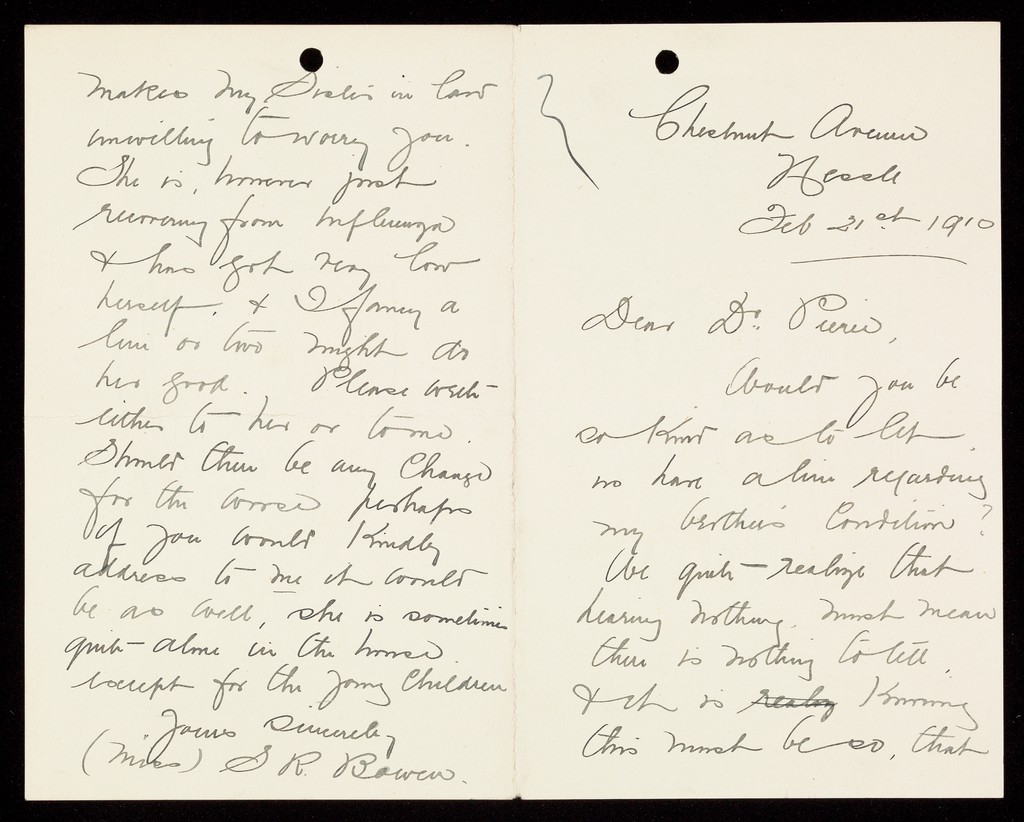 Chestnut Avenue
Hessle
Feb 21st 1910
Dear Dr. Pierce,
Would you be
so kind as to let
us have a line regarding
my brother's condition?
We quite realize that
hearing nothing must mean
there is nothing to tell,
& it is realizg knowing
this must be so, that
makes my Sister in law
unwilling to worry you.
She is, however just
recovering from influenza
& has got very low
herself, & I fancy a
line or two might do
her good. Please write
either to her or to me.
Should there be any change
for the worse perhaps
if you would kindly
address to me it would
be as well, she is sometimes
quite alone in the house
except for the young children
Yours sincerely
(Miss) S R. Bowen.